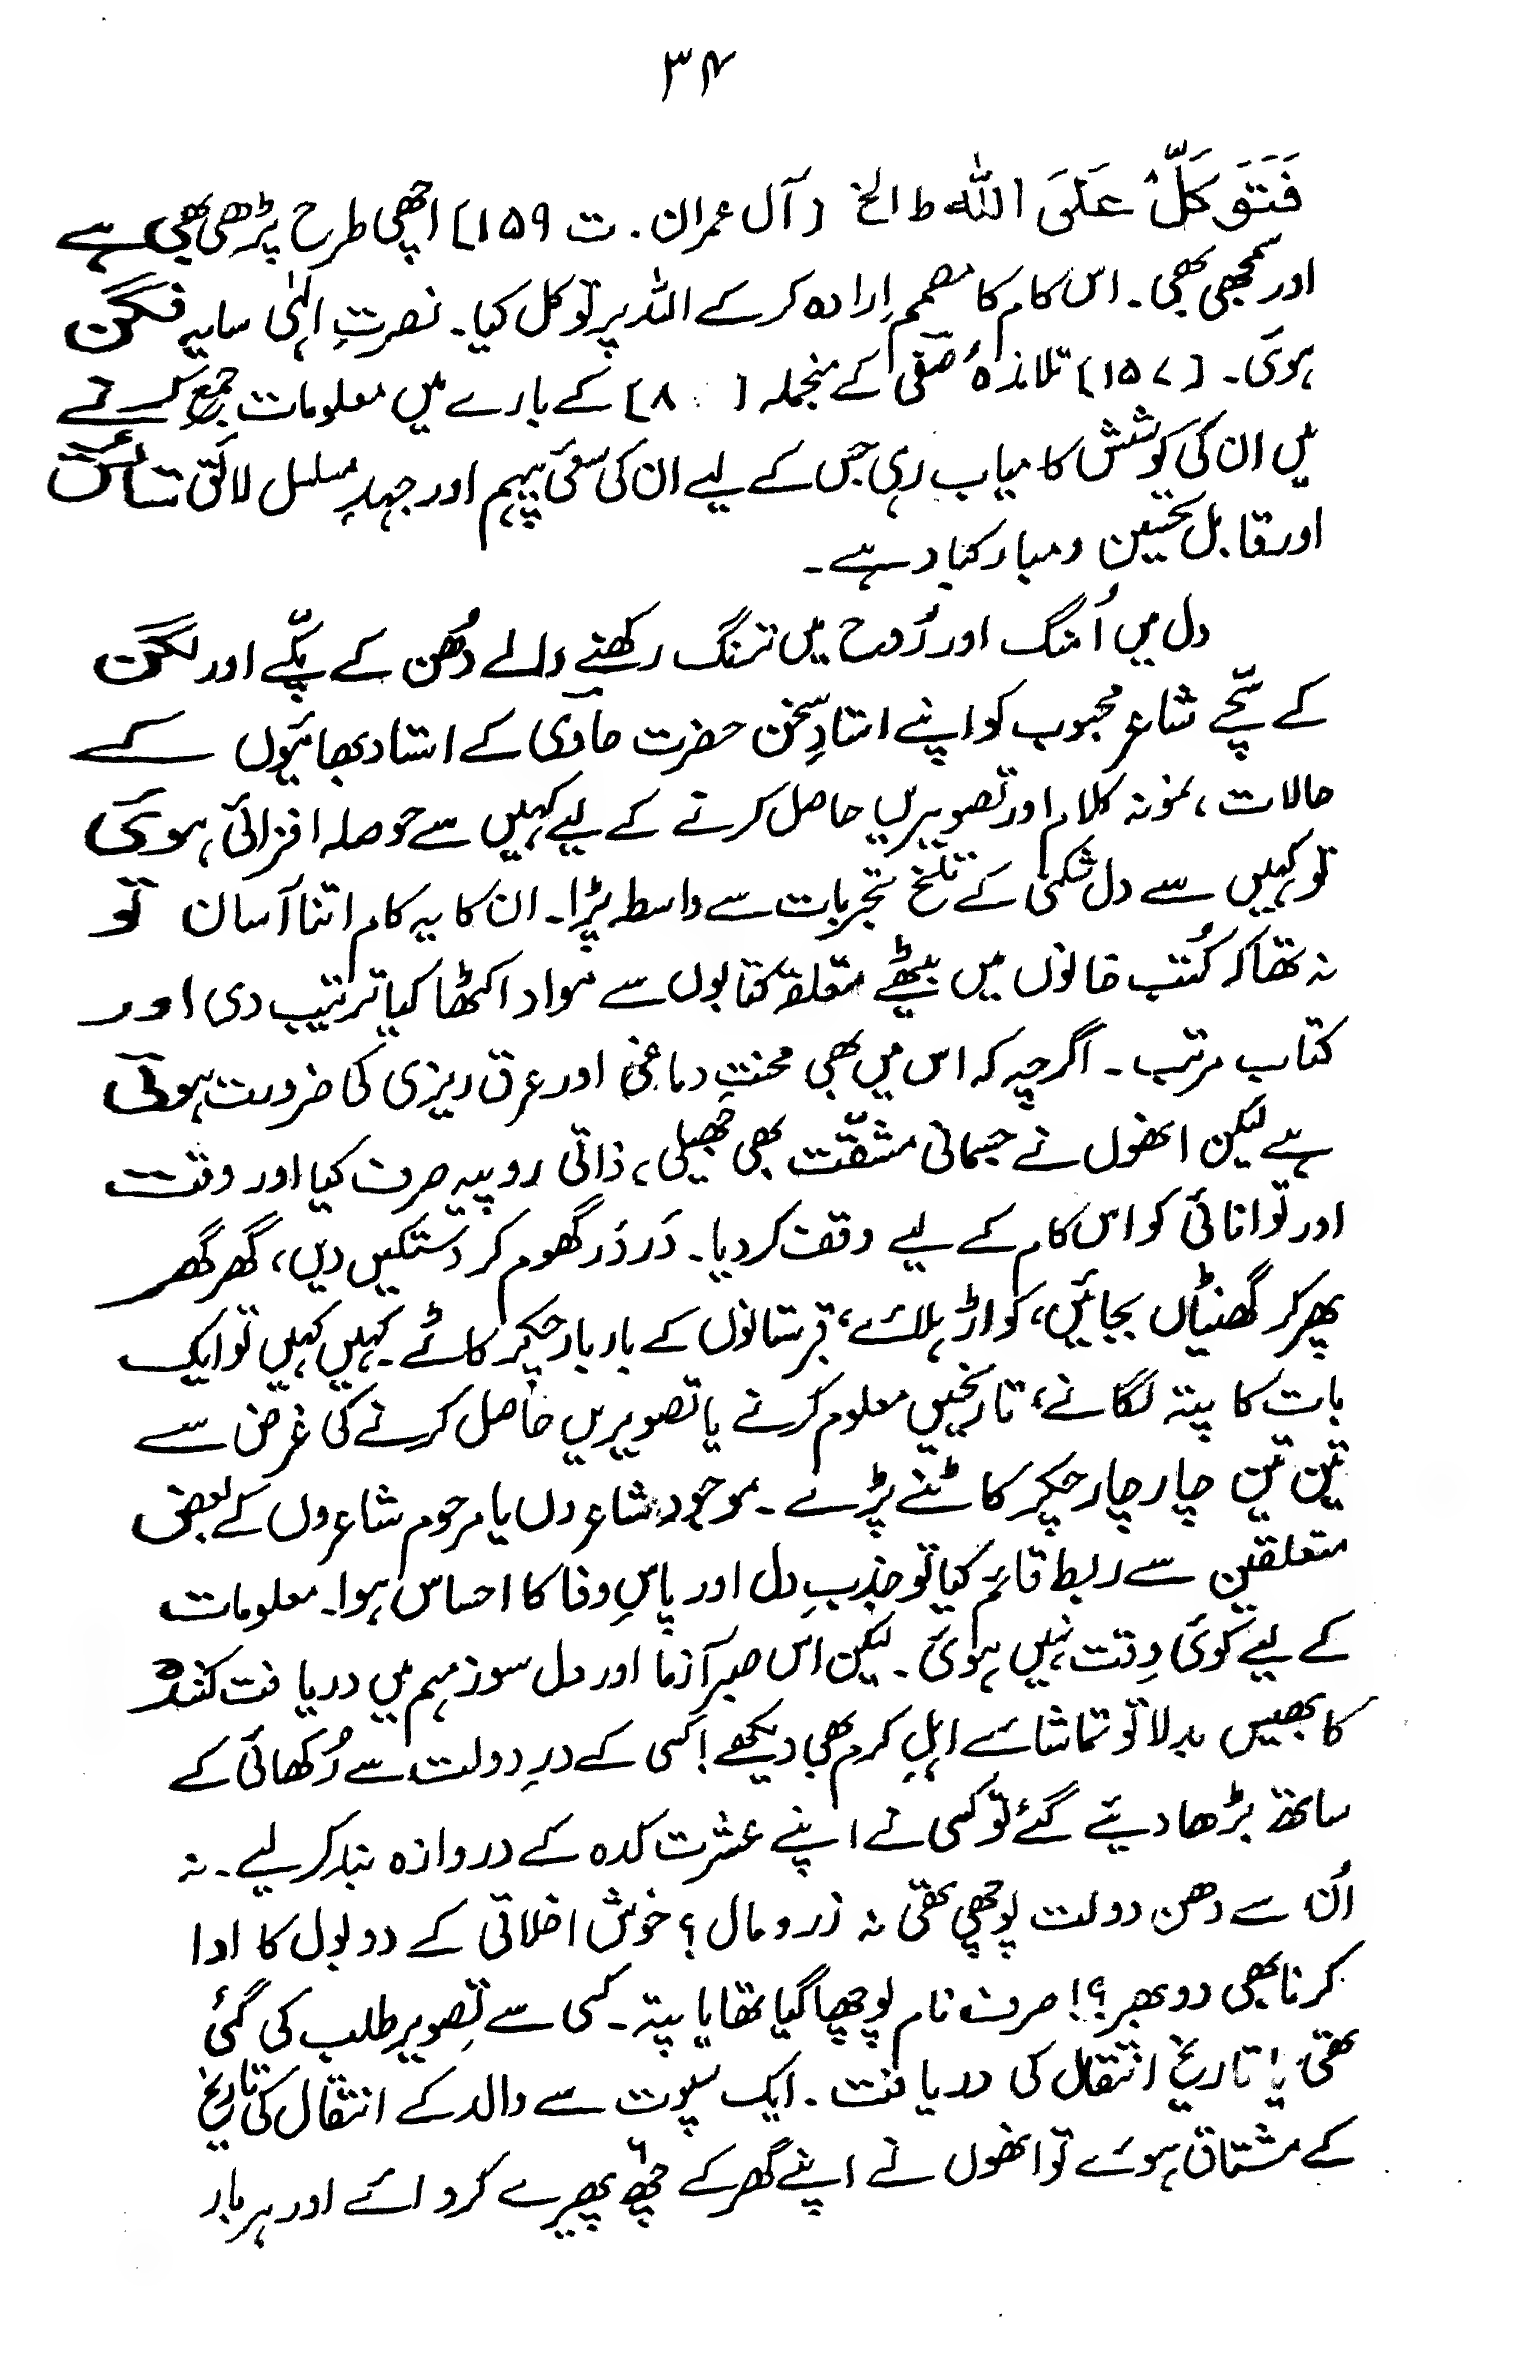 ۳۴
فَتَوَکَّلْ عَلَی اللہ ط الخ (آل عمران ۔ ت ۱۵۹) اچھی طرح پڑھی بھی ہے
اور سمجھی بھی ۔ اس کام کا مصمم اِرادہ کرکے اللہ پر توکل کیا ۔ نصرتِ الٰہی سایہ فگن
ہوئی ۔ (۱۵۷) تلامذۂ صفی کے منجملہ ( ۸۰) کے بارے میں معلومات جمع کرنے
میں ان کی کوشش کامیاب رہی جس کے لیے ان کی سعیٔ پیہم اور جہدِ مسلسل لائق ستائش
اور قابل تحسین و مبارکباد ہے ۔
دل میں اُمنگ اور رُوح میں ترنگ رکھنے والے دُھن کے پکّے اور لگن
کے سچّے شاعر محبوب کو اپنے استادِ سخن حضرت حاوی کے استاد بھائیوں کے
حالات ، نمونہ کلام اور تصویریں حاصل کرنے کے لیے کہیں سے حوصلہ افزائی ہوئی
تو کہیں سے دل شکنی کے تلخ تجربات سے واسطہ پڑا ۔ ان کا یہ کام اتنا آسان تو
نہ تھا کہ کُتب خانوں میں بیٹھے متعلقہ کتابوں سے مواد اکٹھا کیا ترتیب دی اور
کتاب مرتب ۔ اگرچہ کہ اس میں بھی محنتِ دماغی اور عرق ریزی کی ضرورت ہوتی
ہے لیکن انھوں نے جسمانی مشقّت بھی جھیلی ، ذاتی روپیہ صرف کیا اور وقت
اور توانائی کو اس کام کے لیے وقف کر دیا ۔ دَر دَر گھوم کر دستکیں دیں ، گھر گھر
پھر کر گھنٹیاں بجائیں ، کواڑ ہلائے ، قبرستانوں کے بار بار چکر کاٹے ۔ کہیں کہیں تو ایک
بات کا پتہ لگانے ، تاریخیں معلوم کرنے یا تصویریں حاصل کرنے کی غرض سے
تین تین چار چار چکر کاٹنے پڑے ۔ موجودہ شاعروں یا مرحوم شاعروں کے بعض
متعلقین سے ربط قائم کیا تو جذبِ دل اور پاسِ وفا کا احساس ہوا ۔ معلومات
کے لیے کوئی دِقت نہیں ہوئی ۔ لیکن اس صبر آزما اور دل سوز مہم میں دریافت کنندہ
کا بھیس بدلا تو تماشائے اہلِ کرم بھی دیکھے ! کسی کے درِ دولت سے رُکھائی کے
ساتھ بڑھا دیئے گئے تو کسی نے اپنے عشرت کدہ کے دروازہ بند کر لیے ۔ نہ
اُن سے دھن دولت پوچھی تھی نہ زر و مال ؟ خوش اخلاقی کے دو بول کا ادا
کرنا بھی دوبھر ؟! صرف نام پوچھا گیا تھا یا پتہ ۔ کسی سے تصویر طلب کی گئی
تھی یا تاریخ انتقال کی دریافت ۔ ایک سپوت سے والد کے انتقال کی تاریخ
کے مشتاق ہوئے تو انھوں نے اپنے گھر کے چھ پھیرے کروائے اور ہر بار